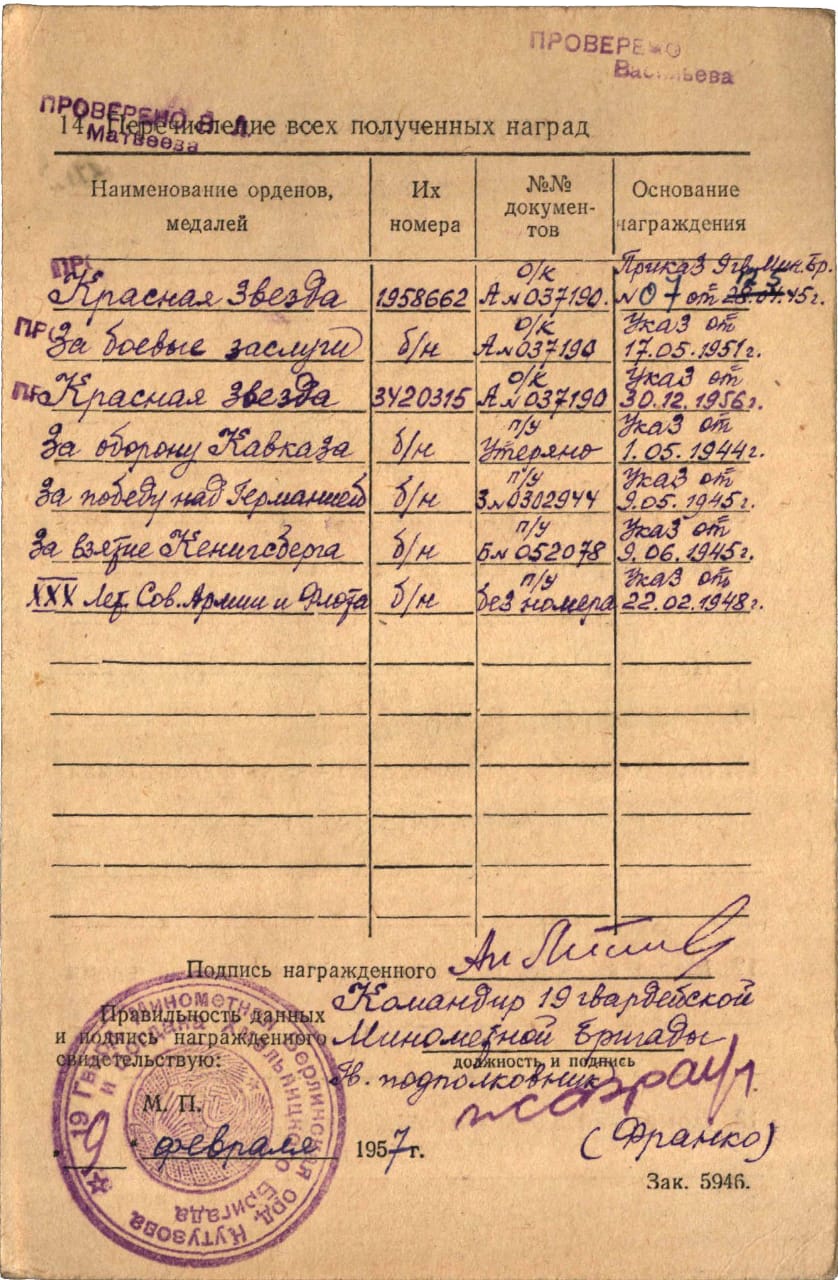 ПРОВЕРЕНО
Васильева
ПРОВЕРЕНО В. Л.
Матвеева
14. Перечисление всех полученных наград
Наименование орденов, медалей
Их номера
№№ документов
Основание награждения
ПР
Красная Звезда 1958662 о/к А № 037190. Приказ 9 гв. Мин. Бр. № 07 от 45 г.
ПРО
За боевые заслуги б/н о/к А № 037190 Указ от 17.05.1951 г.
ПР
Красная Звезда 3420315 о/к А № 037190 Указ от 30.12.1956 г.
За оборону Кавказа б/н п/у Утеряно Указ от 1.05.1944 г.
За победу над Германией б/н п/у З № 0302944 Указ от 9.05.1945 г.
За взятие Кенигсберга б/н п/у Б № 052078 Указ от 9.06.1945 г.
XXX Лет. Сов. Армии и Флота б/н п/у без номера Указ от 22.02.1948 г.
Подпись награжденного
Правильность данных
и подпись награжденного
свидетельствую:
Командир 19 гвардейской
Минометной Бригады
должность и подпись
Гв. подполковник
М. П.
(Франко)
"9" февраля 1957 г.
Зак. 5946.
19 Гвард. Минометная Берлинская орд. Кутузова
и Богдана Хмельницкого Бригада